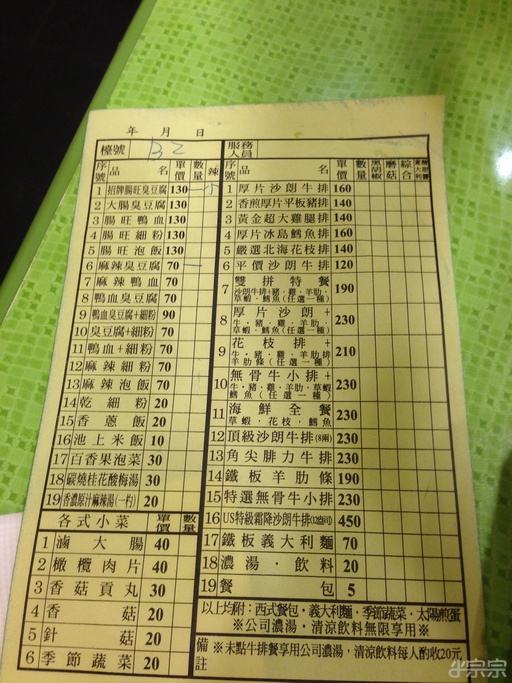 年 月 日
檯號 B2 服務人員
序號 品名 單價 數量 辣
1 招牌腸旺臭豆腐 130 一 小
2 大腸臭豆腐 130
3 腸旺鴨血 130
4 腸旺細粉 130
5 腸旺泡飯 130
6 麻辣臭豆腐 70 一
7 麻辣鴨血 70
8 鴨血臭豆腐 70
9 鴨血臭豆腐+細粉 90
10 臭豆腐+細粉 70
11 鴨血+細粉 70
12 麻辣細粉 70
13 麻辣泡飯 70
14 乾細粉 20
15 香蔥飯 20
16 池上米飯 10
17 百香果泡菜 30
18 碳燒桂花酸梅湯 30
19 香濃原汁麻辣湯(一杓) 20
各式小菜 單價 數量
1 滷大腸 40
2 橄欖肉片 40
3 香菇貢丸 30
4 香菇 20
5 針菇 20
6 季節蔬菜 20
序號 品名 單價 數量 黑胡椒 磨菇 綜合
1 厚片沙朗牛排 160
2 香煎厚片平板豬排 140
3 黃金超大雞腿排 140
4 厚片冰島鱈魚排 140
5 嚴選北海花枝排 140
6 平價沙朗牛排 120
7 雙拼特餐 190
沙朗牛排+豬、雞、羊肋、
草蝦、鱈魚(任選一種)
8 厚片沙朗+ 230
牛、豬、雞、羊肋、
草蝦、鱈魚(任選一種)
9 花枝排+ 210
牛、豬、雞、草蝦、鱈魚
羊肋條(任選一種)
10 無骨牛小排+ 230
牛、豬、雞、羊肋、草蝦
鱈魚(任選一種)
11 海鮮全餐 230
草蝦、花枝、鱈魚
12 頂級沙朗牛排(8兩) 230
13 角尖腓力牛排 230
14 鐵板羊肋條 190
15 特選無骨牛小排 230
16 US特級霜降沙朗牛排 450
17 鐵板義大利麵 70
18 濃湯、飲料 20
19 餐包 5
以上均附：西式餐包、義大利麵、季節蔬菜、太陽煎蛋
※公司濃湯、清涼飲料無限享用※
備註 ※未點牛排餐享用公司濃湯，清涼飲料每人酌收20元
小宗宗